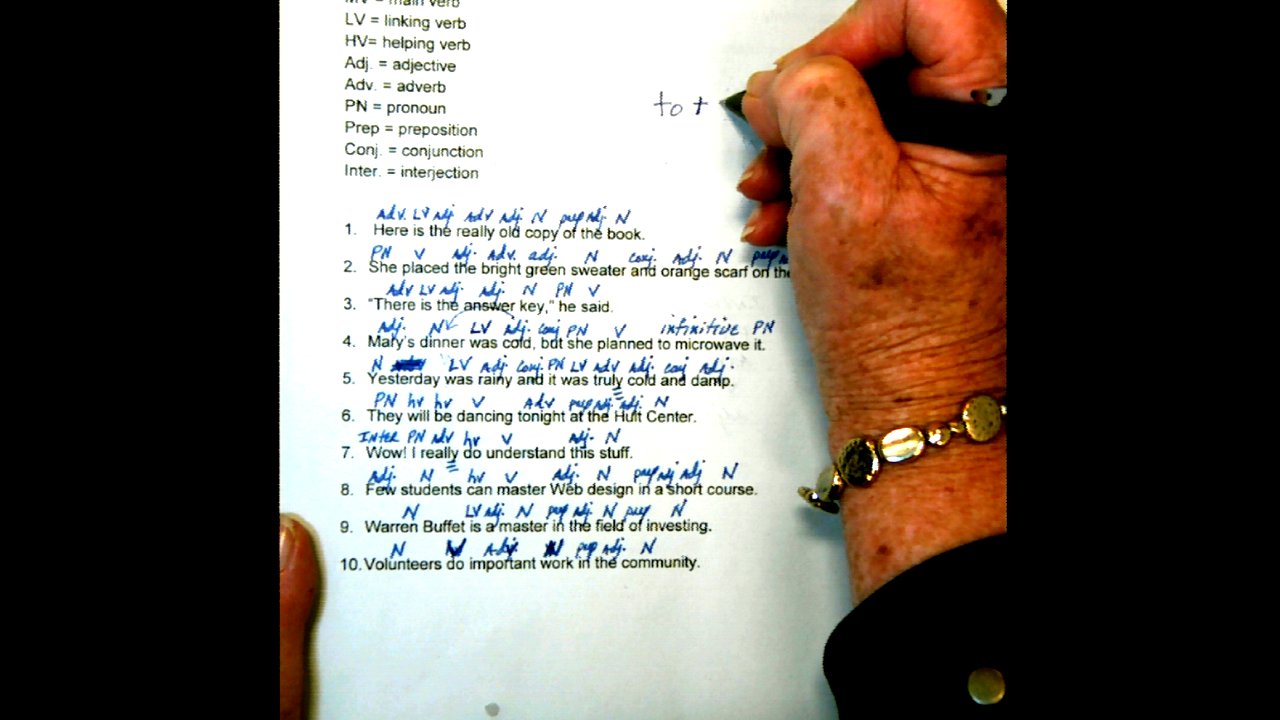 MV = main verb
LV = linking verb
HV= helping verb
Adj. = adjective
Adv. = adverb
PN = pronoun
to t
Prep = preposition
Conj. = conjunction
Inter. = interjection
Adv. LV adj. Adv adj. N prep adj. N
1. Here is the really old copy of the book.
PN V Adj. Adv. adj. N conj. Adj. N prep
2. She placed the bright green sweater and orange scarf on the
Adv LV adj. Adj. N PN V
3. "There is the answer key," he said.
Adj. N LV Adj. conj PN V infinitive PN
4. Mary's dinner was cold, but she planned to microwave it.
N LV Adj. conj. PN LV Adv Adj. conj Adj.
5. Yesterday was rainy and it was truly cold and damp.
PN hv hv V Adv prep adj. adj. N
6. They will be dancing tonight at the Hult Center.
Inter PN Adv hv V adj. N
7. Wow! I really do understand this stuff.
Adj. N hv V Adj. N prep adj adj N
8. Few students can master Web design in a short course.
N LV adj. N prep adj. N prep N
9. Warren Buffet is a master in the field of investing.
N V Adj. N prep adj. N
10. Volunteers do important work in the community.